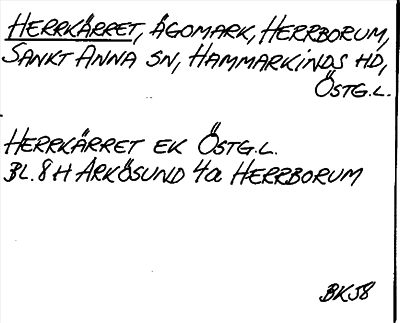 HERRKÄRRET, ÄGOMARK, HERRBORUM,
SANKT ANNA SN, HAMMARKINDS HD,
ÖSTG.L.
HERRKÄRRET EK ÖSTG.L.
BL. 8H ARKÖSUND 4a HERRBORUM
BKJ8